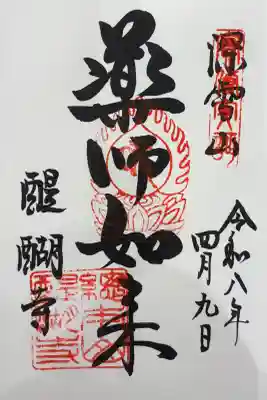 深雪山
薬師如来
醍醐寺
令和八年
四月九日